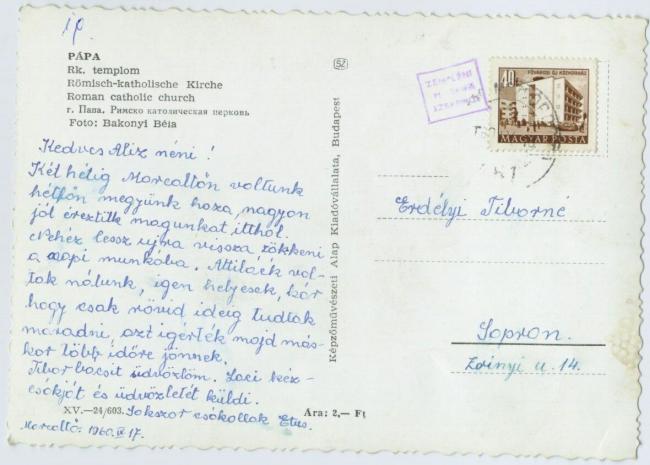 ip.
PÁPA
Rk. templom
Römisch-katholische Kirche
Roman catholic church
г. Папа. Римско католическая церковь
Foto: Bakonyi Béla
Kedves Aliz néni!
Két hétig Marcaltőn voltunk
hétfőn megyünk haza, nagyon
jól éreztük magunkat itthol.
Nehéz lessz ujra vissza zökkeni
a napi munkába. Attiláék vol-
tak nálunk, igen helyesek, kár
hogy csak rövid ideig tudtak
maradni, azt igérték majd más-
kor több időre jönnek.
Tibor bácsit üdvözlöm. Laci kéz-
csókját és üdvözletét küldi.
Sokszor csókollak Etus.
XV.—24/603.
Ára: 2,— Ft
Marcaltő. 1960. 17.
Képzőművészeti Alap Kiadóvállalata, Budapest
SZ
40
FŐVÁROSI ÚJ KÖZKÓRHÁZ
MAGYAR POSTA
Erdélyi Tiborné
Sopron.
Zrinyi u. 14.